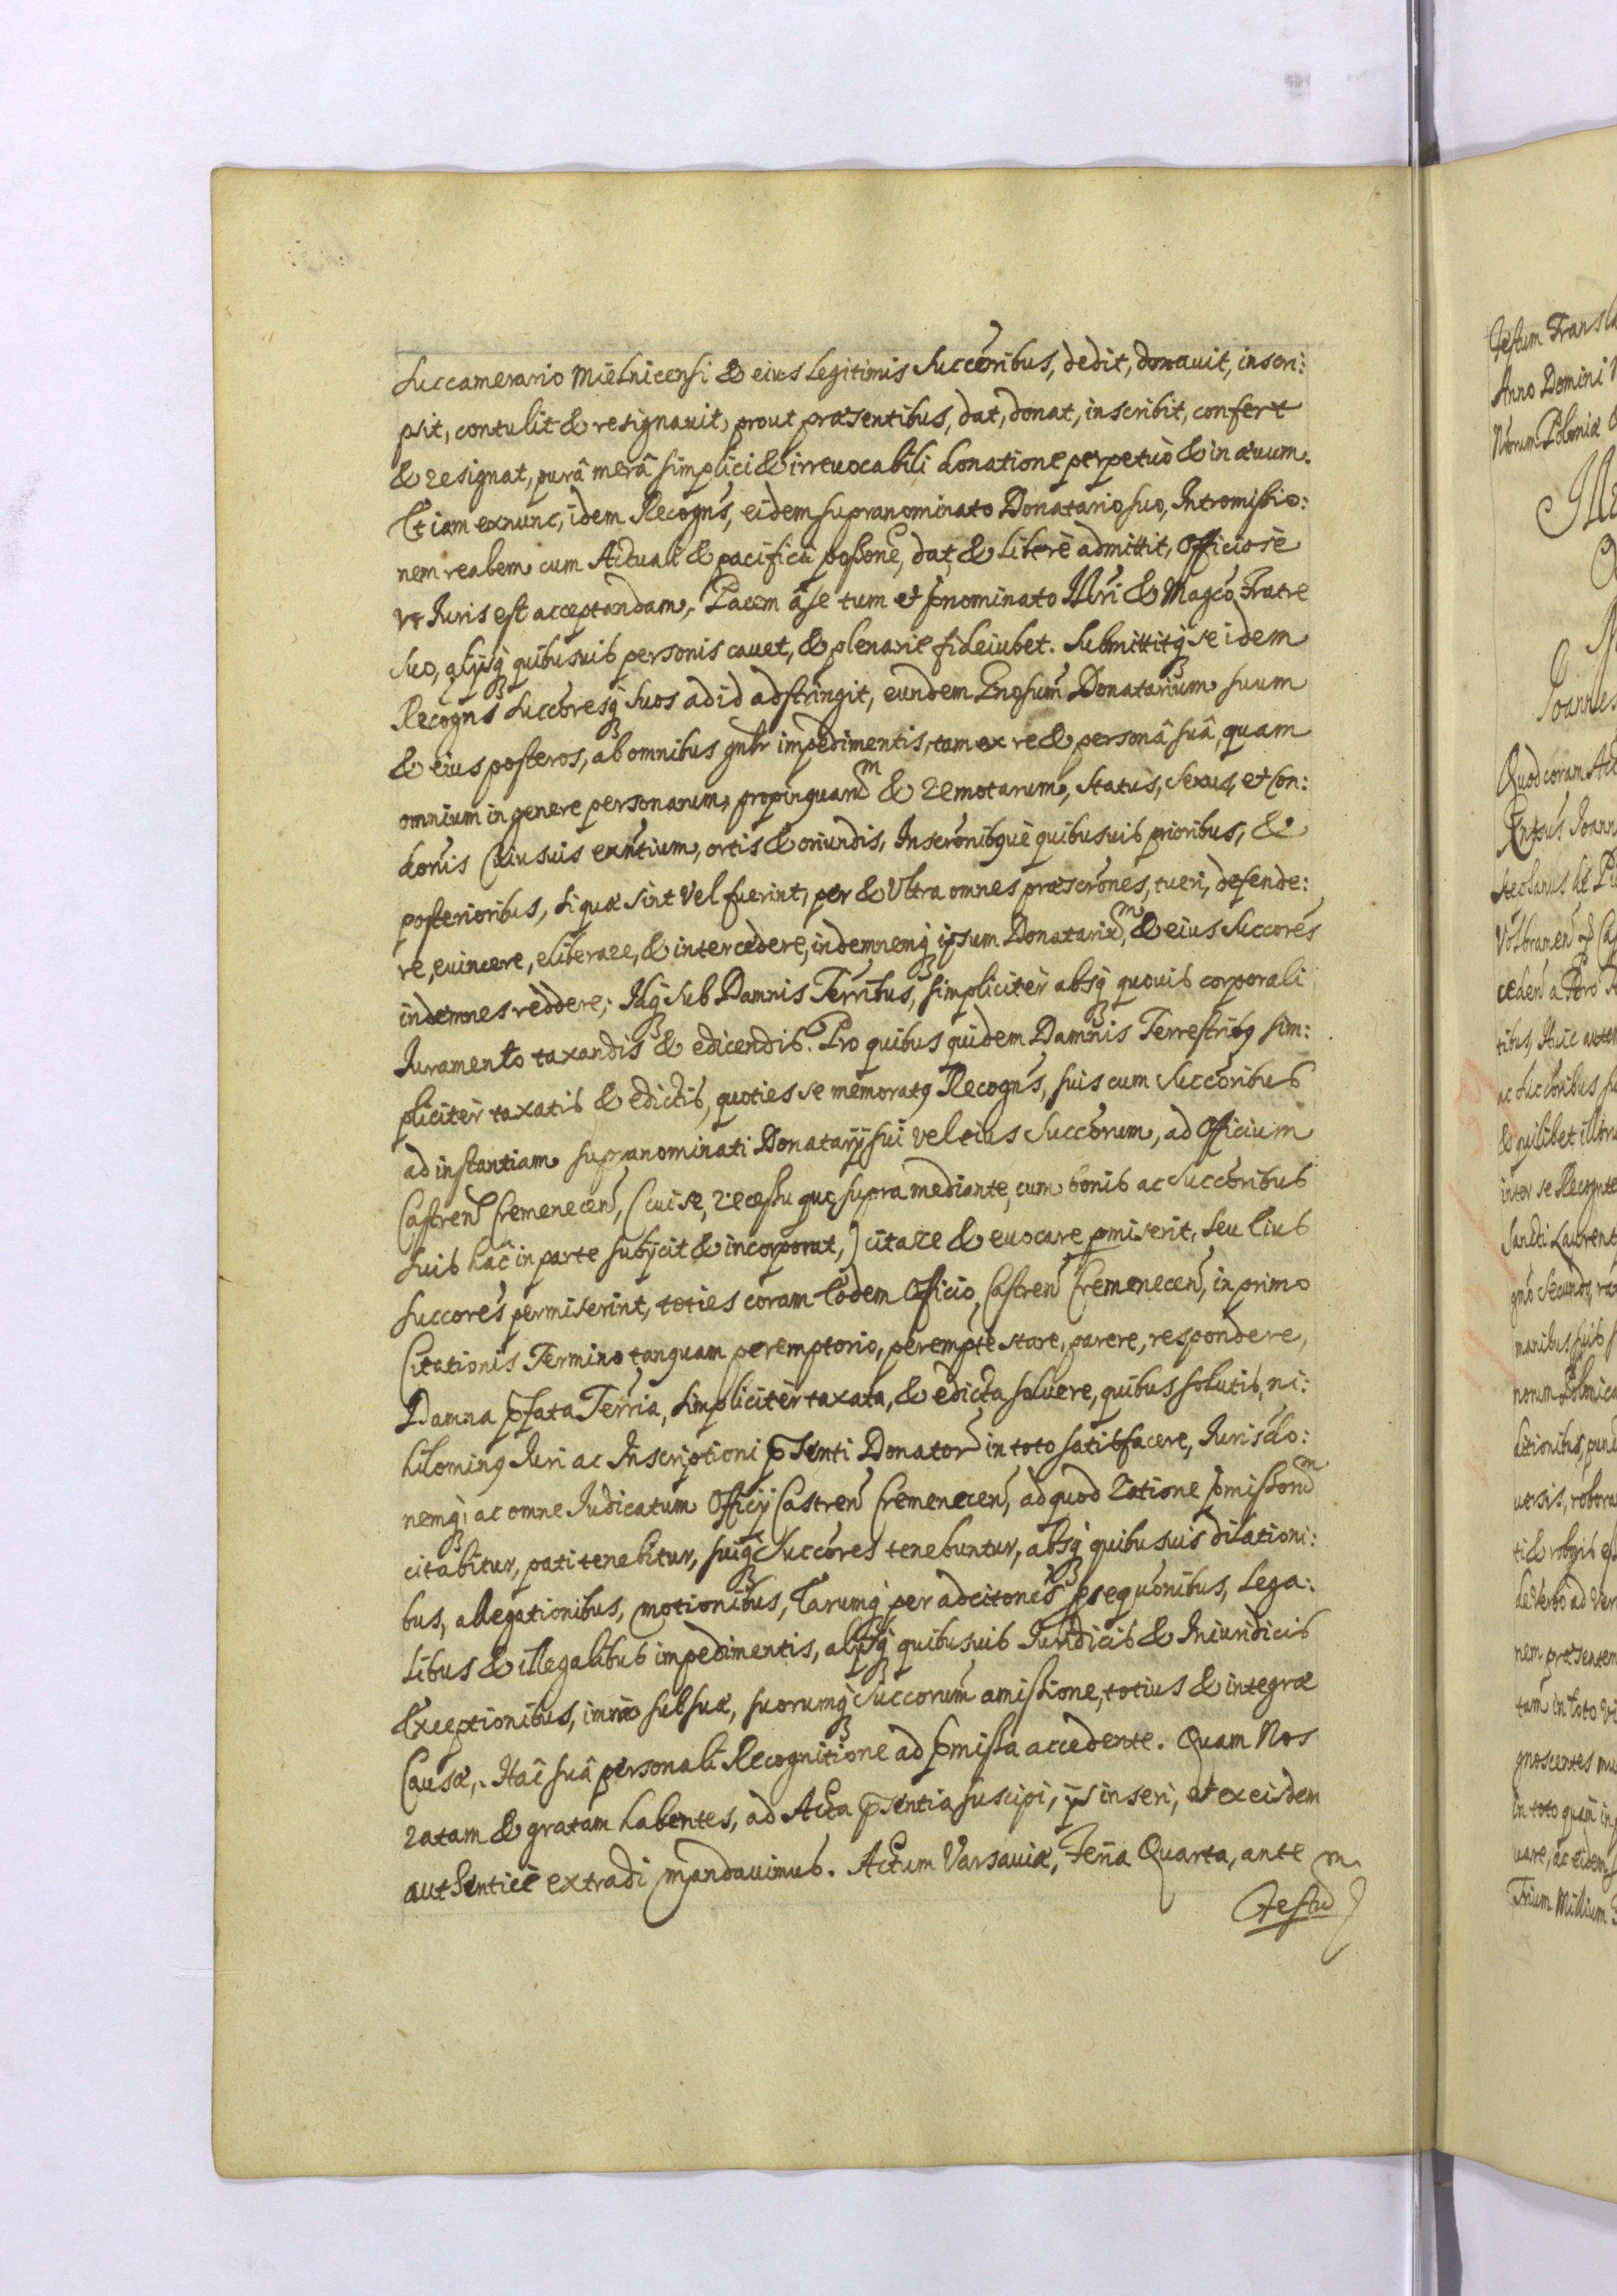 Succamerario Mielnicensi & eius Legitimis Succoribus, dedit, donauit, inscri:
psit, contulit & resignauit, prout præsentibus, dat, donat, inscribit, confert
& resignat, purâ merâ simplici & irreuocabili donatione perpetuò & in æuum.
Et iam exnunc, idem Recogns, eidem supranominato Donatario suo, Intromissio:
nem realem cum Actuali & pacifica possone, dat, & liberè admittit, Officiosè
vt Juris est acceptandam. Pacem â se tum et prnominato Illri & Magco Fratre
Suo, alijsq quibusuis personis cauet, & plenarie fideiubet. Submittitq se idem
Recogns Succoresq Suos ad id adstringit, eundem Gnosum Donatarium suum
& eius posteros, ab omnibus gnlr impedimentis, tam ex re & personâ suâ, quam
omnium in genere personarum, propinquarum & remotarum, Status, Sexus, et Con:
donis Cuiusuis exntium, ortis & oriundis, Inscronibque quibusuis prioribus, &
posterioribus, si quæ sint vel fuerint, per & Vltra omnes præscrones, tueri, defende:
re, euincere, eliberare, & intercedere, indemnemq ipsum Donatarium, & eius Succores
indemnes reddere; Idq sub Damnis Terribus, simpliciter absq quouis corporali
Juramento taxandis & edicendis. Pro quibus quidem Damnis Terrestribq sim:
pliciter taxatis & edictis, quoties se memoratq Recogns, suis cum Succoribus
ad instantiam supranominati Donatarij sui vel eius Succorum, ad Officium
Castren Cremenecen, (cui se, recessu quo supra mediante, cum bonis ac Succoribus
Suis hac in parte subijcit & incorporat,) citare & euocare pmiserit, seu Eius
Succores permiserint, toties coram Eodem Officio, Castren Cremenecen, in primo
Citationis Termino tanquam peremptorio, perempte stare, parere, respondere,
Damna pfata Terria, simpliciter taxata, & edicta soluere, quibus solutis, ni:
hilominq Juri ac Inscriptioni psenti Donator in toto satisfacere, Jurisdo:
nemq, ac omne Judicatum Officij Castren Cremenecen, ad quod ratione pmissorum
citabitur, pati tenebitur, suiq Succores tenebuntur, absq quibusuis dilationi:
bus, allegationibus, motionibus, Earumq per adcitones psequonibus, Lega:
libus & illegalibus impedimentis, alijsq quibusuis Juridicis & Iniuridicis
Exceptionibus, immo sub suæ, suorumq Succorum amissione, totius & integræ
Causæ. Hac suâ personali Recognitione ad pmissa accedente. Quam Nos
ratam & gratam habentes, ad Acta psentia suscipi, ijs inseri, et ex eisdem
authenticè extradi mandauimus. Actum Varsauiæ, Feria Quarta, ante
Festum
Festum Transla
Anno Domini
Norum Poloniæ
Joannes
Quod coram
tibus, Huic autem
ac Succoribus
& quilibet
inter se
Sancti Laurent
manibus suis
uersis, robora
de Verbo ad Ver
nem præsentem
tam in toto
gnoscentes
in toto quam in
uare, ac eidem
Trium Millium